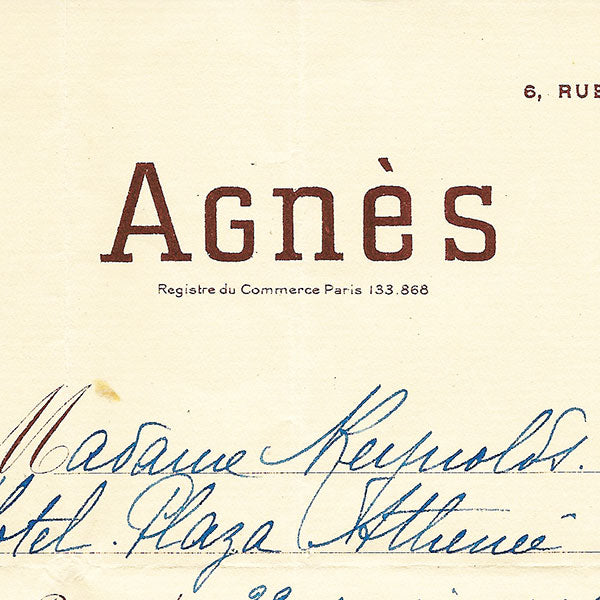 6, RUE
Agnès
Registre du Commerce Paris 133.868
Madame Reynolds.
Hotel. Plaza Athenée